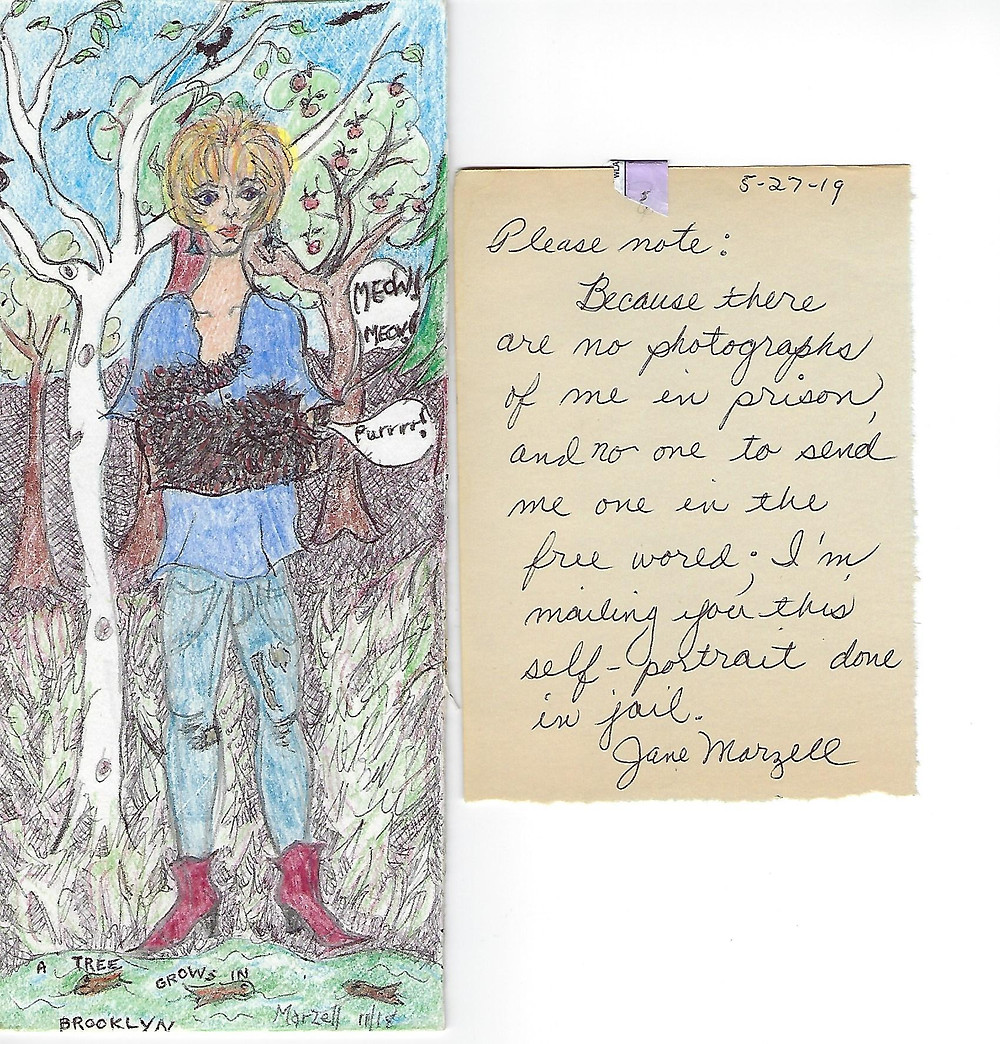 MEOW!
MEOW!
Purrrr!
A TREE
GROWS IN
BROOKLYN
Marzell 11/18
5-27-19
Please note:
Because there
are no photographs
of me in prison,
and no one to send
me one in the
free world; I'm
mailing you this
self-portrait done
in jail.
Jane Marzell